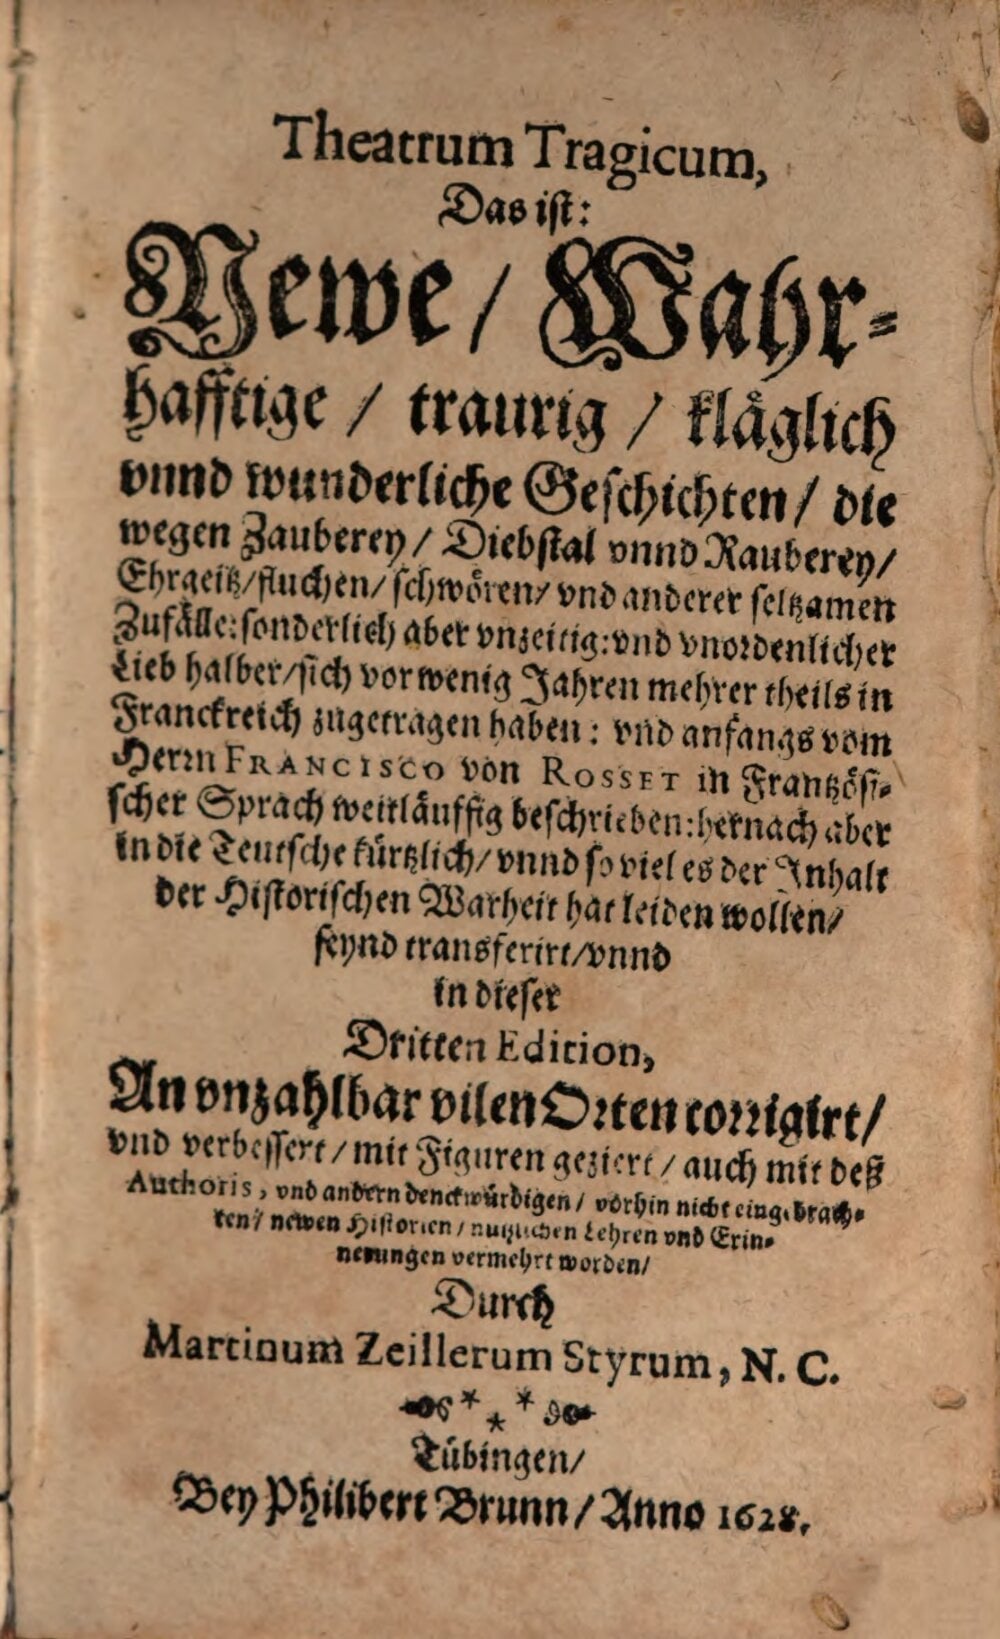 Theatrum Tragicum,
Das ist:
Newe / Wahr-
hafftige / traurig / kläglich
vnnd wunderliche Geschichten / die
wegen Zauberey / Diebstal vnnd Rauberey /
Ehrgeitz / fluchen / schwören / vnd anderer seltzamen
Zufälle: sonderlich aber vnzeitig: vnd vnordenlicher
Lieb halber / sich vor wenig Jahren mehrer theils in
Franckreich zugetragen haben: vnd anfangs vom
Herrn FRANCISCO von ROSSET in Frantzösi-
scher Sprach weitläuffig beschrieben: hernach aber
in die Teutsche kürtzlich / vnnd so viel es der Inhalt
der Historischen Warheit hat leiden wollen /
seynd transferirt / vnnd
in dieser
Dritten Edition,
An vnzahlbar vilen Orten corrigirt /
vnd verbessert / mit Figuren geziert / auch mit deß
Authoris, vnd andern denckwürdigen / vorhin nicht eingebrach-
ten / newen Historien / nutzlichen Lehren vnd Erin-
nerungen vermehrt worden /
Durch
Martinum Zeillerum Styrum, N. C.
Tübingen /
Bey Philibert Brunn / Anno 1628.